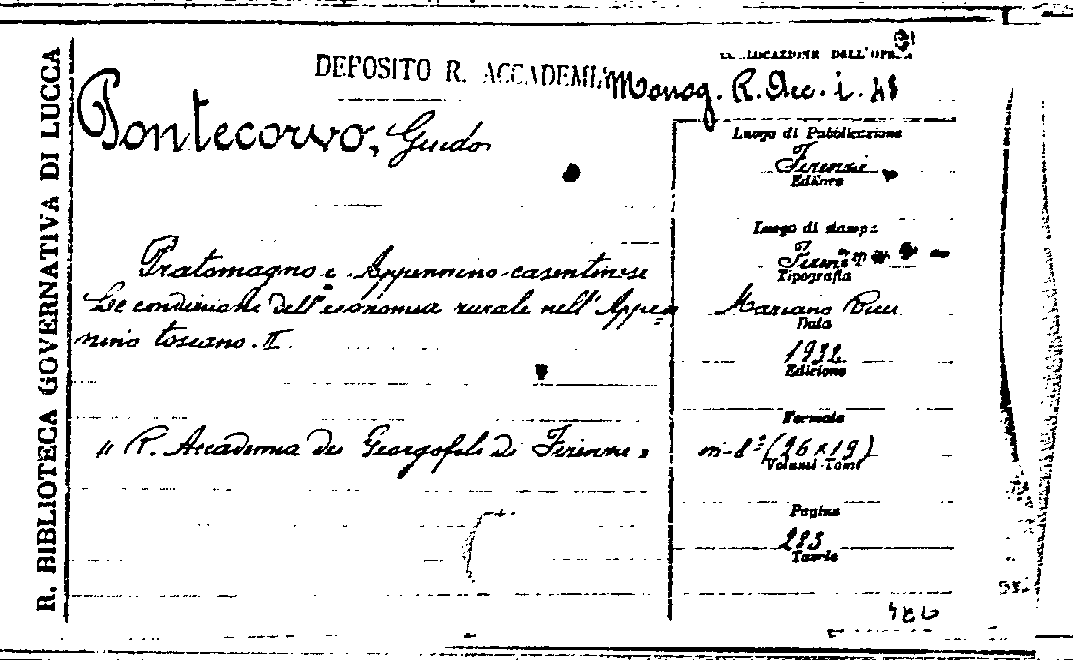 R. BIBLIOTECA GOVERNATIVA DI LUCCA
DEPOSITO R. ACCADEMIA
COLLOCAZIONE DELL'OPERA
Monog. R. Acc. i. 48
Pontecorvo, Guido
Luogo di Pubblicazione
Firenze
Editore
Luogo di stampa
Firenze
Tipografia
Pratomagno e Appennino casentinese
Le condizioni dell'economia rurale nell'Appen=
nino toscano. II.
Mariano Ricci
Data
1932
Edizione
Formato
"R. Accademia dei Georgofili di Firenze"
in-8° (26x19)
Volumi-Tomi
Pagine
283
Tavole